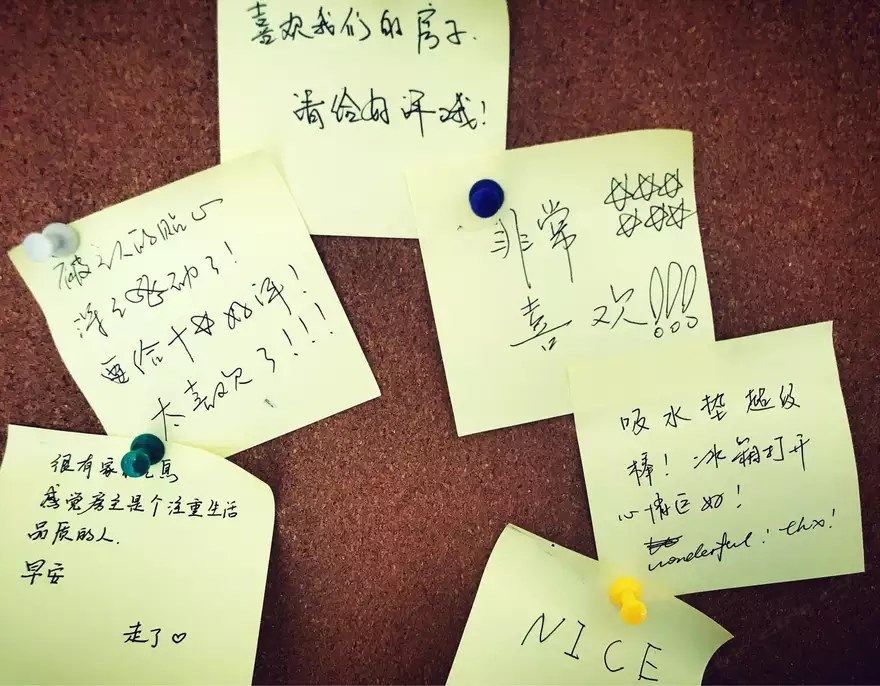 喜欢我们的房子.
请给好评哦!
被主人的贴心
感动了!
要给十☆好评!
太喜欢了!!!
非常 ☆☆☆☆☆☆
喜欢!!!
很有家
感觉房主是个注重生活
品质的人.
早安
走了♡
吸水垫超级
棒!冰箱打开
心情巨好!
wonderful! thx!
NICE